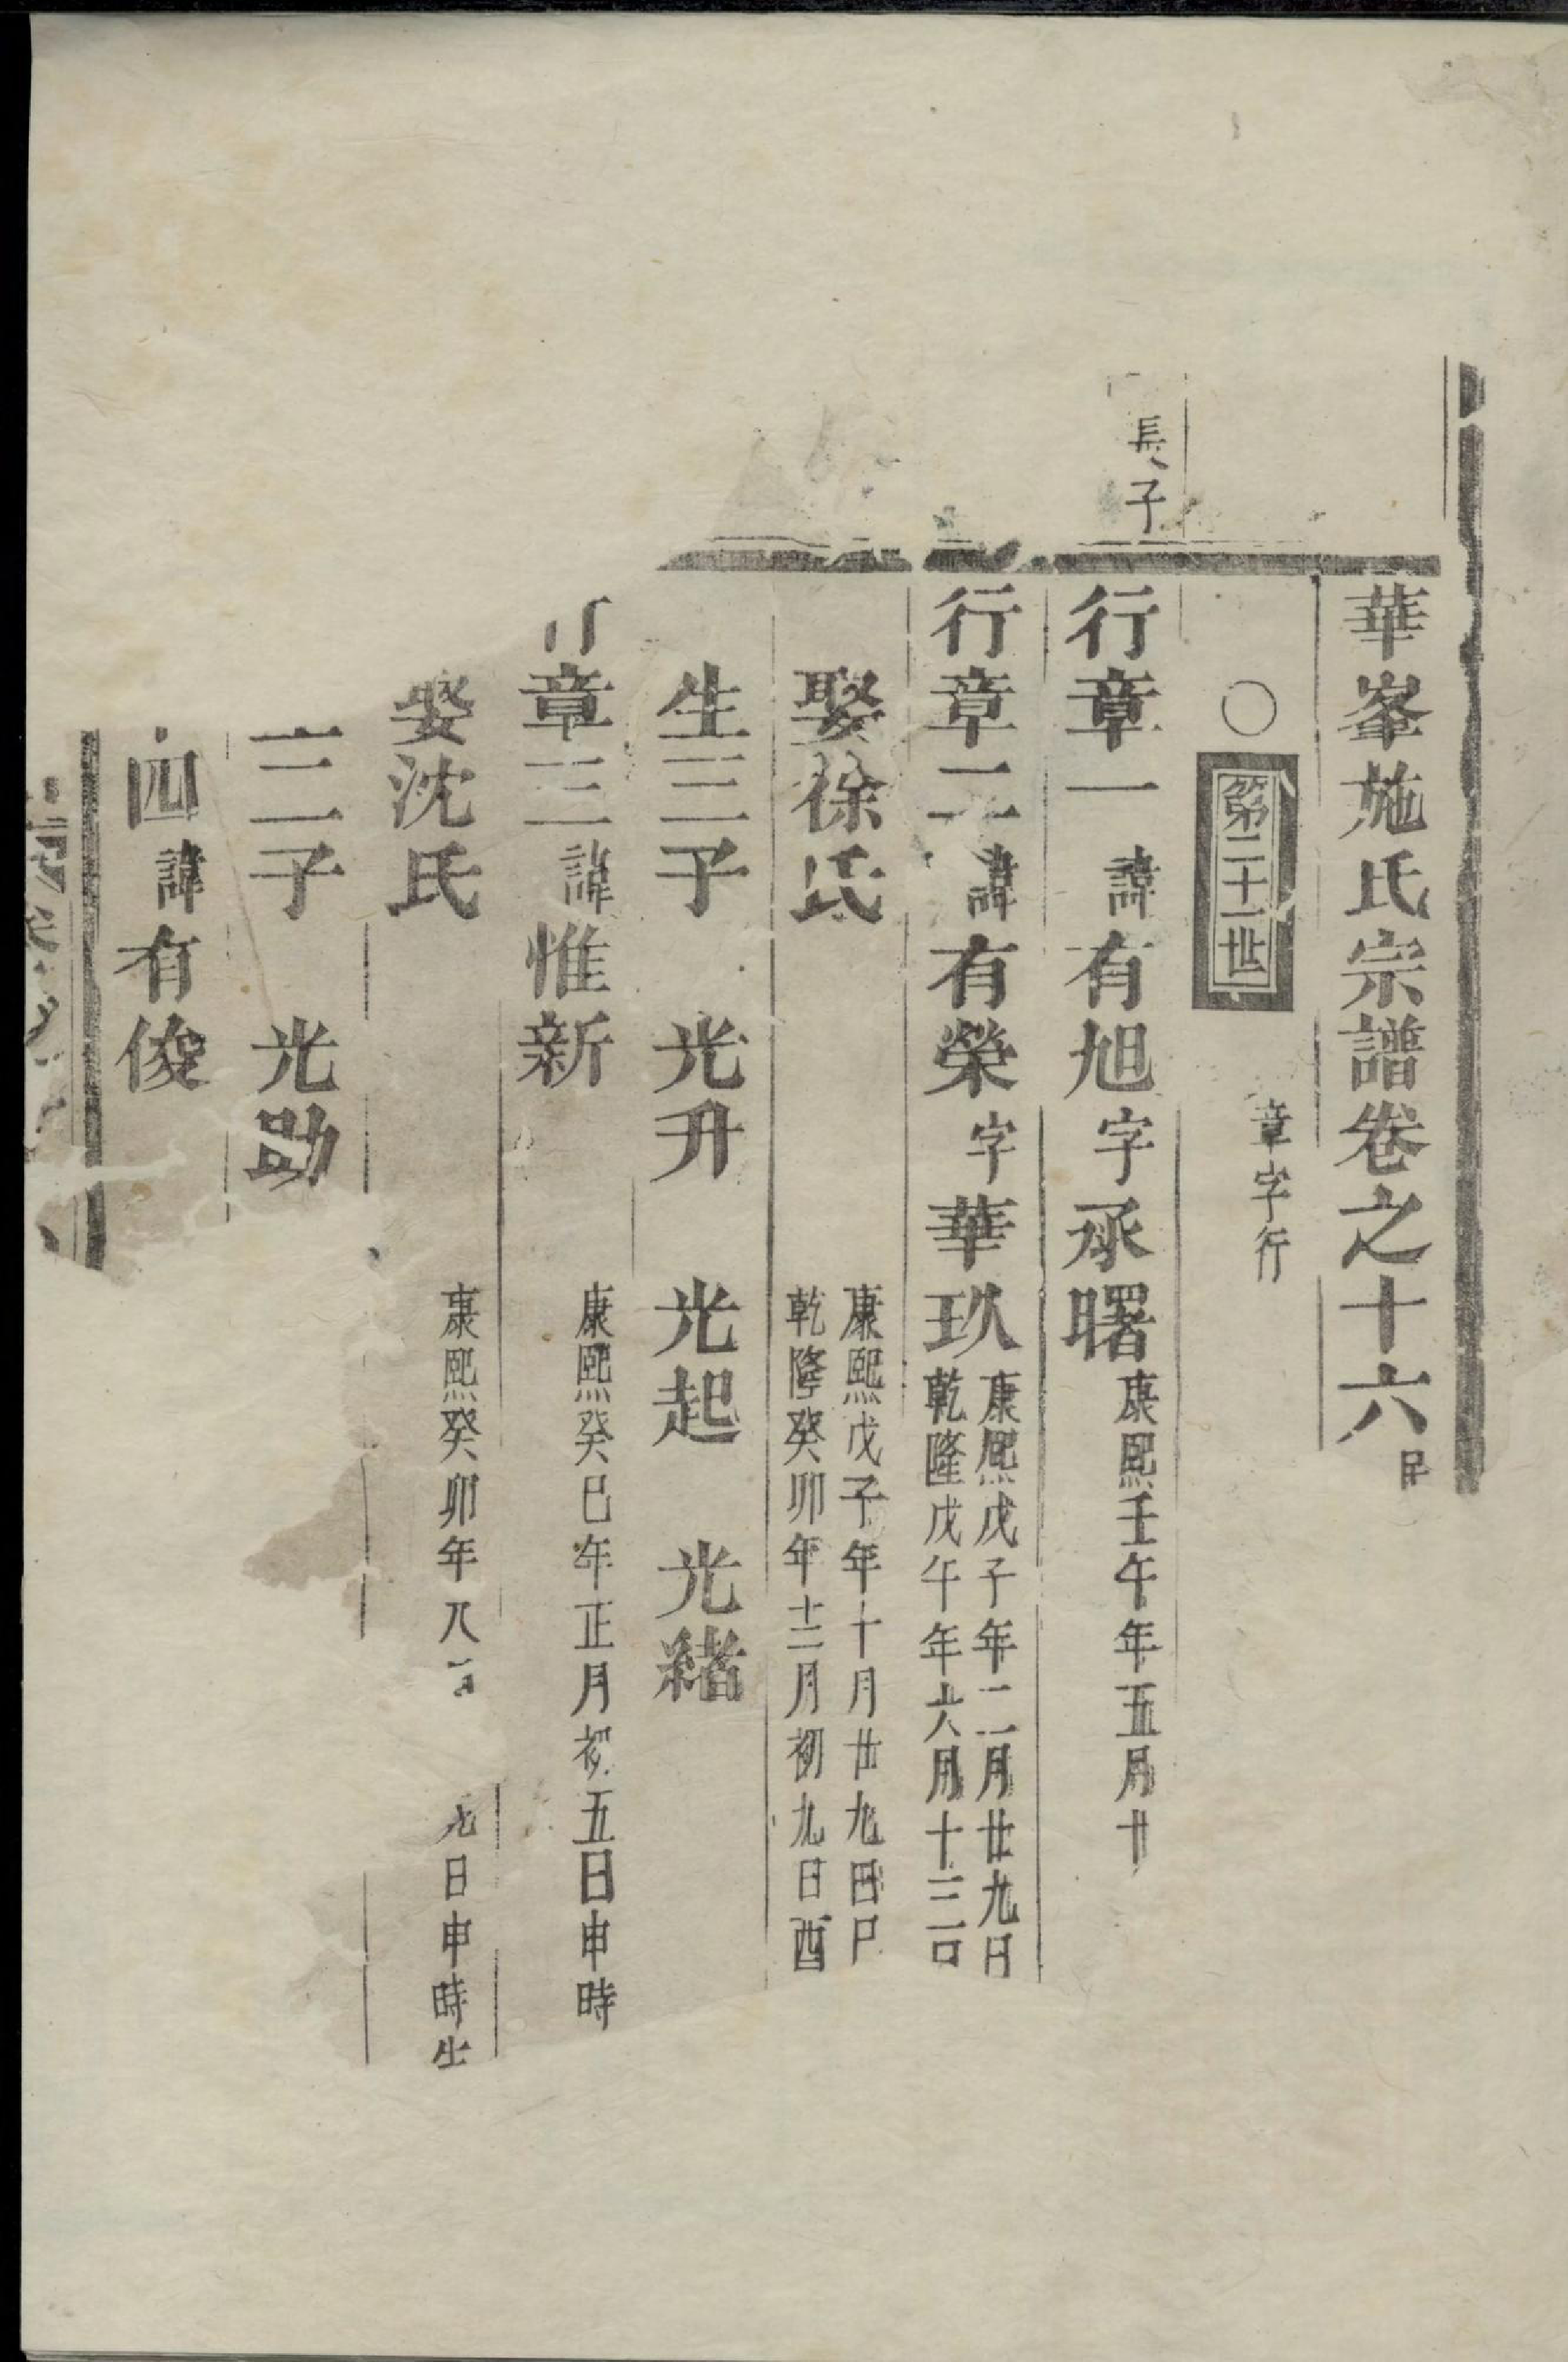 華峯施氏宗譜卷之十六
〇第二十一世 章字行
長子
行章一諱有旭字承曙 康熙壬午年五月廿
行章二諱有榮字華玖 康熙戊子年二月廿九日
乾隆戊午年六月十三
娶徐氏 康熙戊子年十月廿九日
乾隆癸卯年十二月初九日酉
生三子 光升 光起 光緒
章三諱惟新 康熙癸巳年正月初五日申時
娶沈氏 康熙癸卯年八 日申時生
二子 光勛
四諱有俊